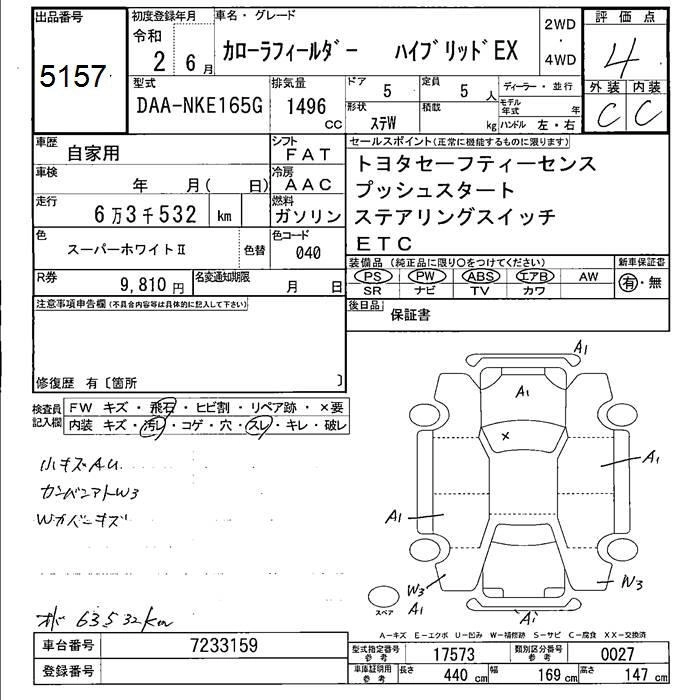 出品番号
5157
初度登録年月
令和
2 6月
車名・グレード
カローラフィールダー ハイブリッドEX
2WD
・
4WD
評価点
4
外装 内装
C C
型式
DAA-NKE165G
排気量
1496
CC
ドア
5
定員
5 人
ディーラー・並行
モデル年式 年
形状
ステW
積載
kg
ハンドル 左・右
車歴
自家用
シフト
FAT
車検
年 月( 日)
冷房
AAC
走行
6万3千532 km
燃料
ガソリン
色
スーパーホワイトⅡ
色替
色コード
040
R券
9,810 円
名変通知期限
月 日
セールスポイント(正常に機能するものに限ります)
トヨタセーフティーセンス
プッシュスタート
ステアリングスイッチ
ETC
装備品 (純正品に限り○をつけてください)
PS PW ABS エアB AW
SR ナビ TV カワ
新車保証書
有・無
後日品
保証書
注意事項申告欄(不具合内容等は具体的に記入して下さい)
修復歴 有〔箇所 〕
検査員記入欄
FW キズ・飛石・ヒビ割・リペア跡・×要
内装 キズ・汚レ・コゲ・穴・スレ・キレ・破レ
小キズAU
カンバンアトW3
Wカバーキズ
63532km
A1
A1
×
A1
A1
W3
A1
W3
A1
スペア
A-キズ E-エクボ U-凹み W-補修跡 S-サビ C-腐食 XX-交換済
車台番号
7233159
登録番号
型式指定番号 参考
17573
類別区分番号 参考
0027
車庫証明用 参考
長さ 440 cm
幅 169 cm
高さ 147 cm